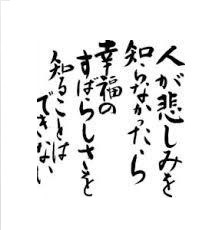 人が悲しみを
知らなかったら
幸福の
すばらしさを
知ることは
できない